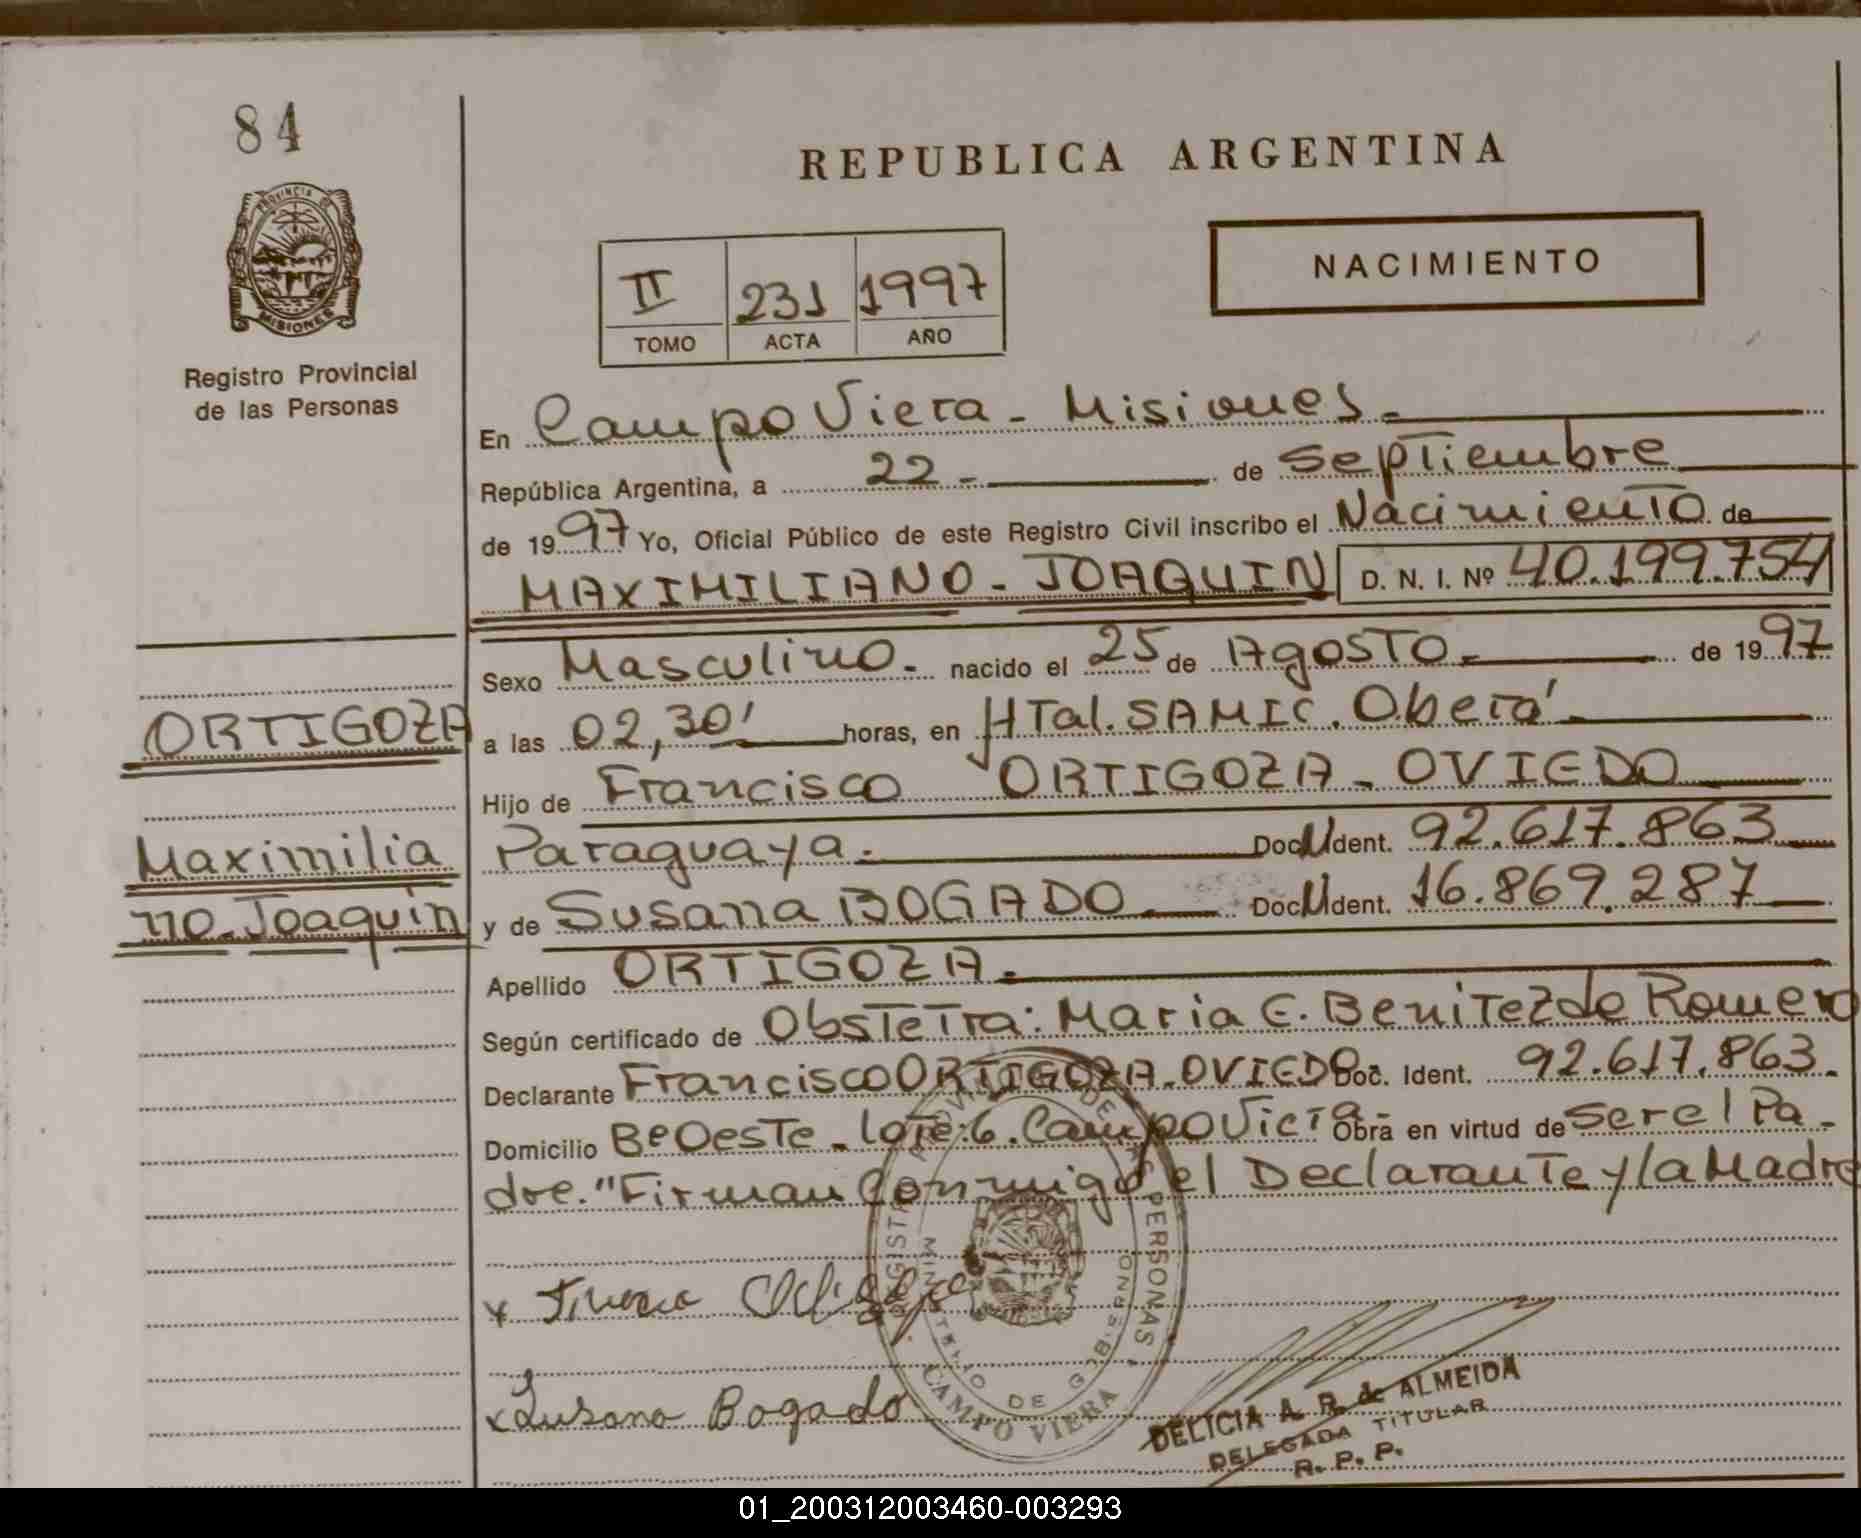 84
REPUBLICA ARGENTINA
PROVINCIA DE
MISIONES
Registro Provincial
de las Personas
II 231 1997
TOMO ACTA AÑO
NACIMIENTO
En Campo Viera - Misiones.
República Argentina, a 22 - de Septiembre
de 1997 Yo, Oficial Público de este Registro Civil inscribo el Nacimiento de
MAXIMILIANO - JOAQUIN D. N. I. Nº 40.199.754
Sexo Masculino. nacido el 25 de Agosto - de 1997
ORTIGOZA
a las 02,30' horas, en HTal. SAMIC. Oberá -
Hijo de Francisco ORTIGOZA - OVIEDO
Maximilia
Paraguaya. Doc. Ident. 92.617.863
no. Joaquín
y de Susana BOGADO Doc. Ident. 16.869.287
Apellido ORTIGOZA.
Según certificado de ObsteTra: Maria E. Benitez de Romero
Declarante Francisco ORTIGOZA - OVIEDO Doc. Ident. 92.617.863.
Domicilio Bº Oeste - lote: 6. Campo Viera - Obra en virtud de Ser el Pa-
dre. "Firman Conmigo el Declarante y la Madre
x
x Susana Bogado
REGISTRO PROVINCIAL DE LAS PERSONAS
MINISTERIO DE GOBIERNO
CAMPO VIERA
DELICIA A. R. de ALMEIDA
DELEGADA TITULAR
R. P. P.
01_200312003460-003293